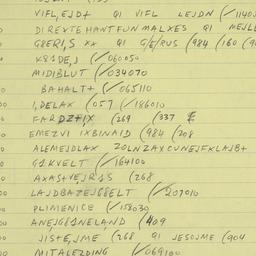 VIFL,EJD+ QI VIFL LEJDN (✓1140
DIREXTEHANTFUNMALXES QI MEJL
G8ERI,S XX QI G/E/RUS (984 (160 (9
K81DE,J (✓060050
MIDIBLUT (✓034070
BAHALT+ (✓065110
I,DELAX (057 (✓186010
(269 (337 £
EMEZVI IXBINAID (984 (208
ALEMEJDLAX ZOLNZAXCUNEJFXLAJB+
G1KVELT (✓164100
AXAS+VEJR1S (268
LAJDBAZEJG8ELT (✓207010
PLIMENICE (✓158030
ANEJG81NELAND (409
JIS+E,JME (268 QI JESOJME (904
MITALEZDING (✓069100